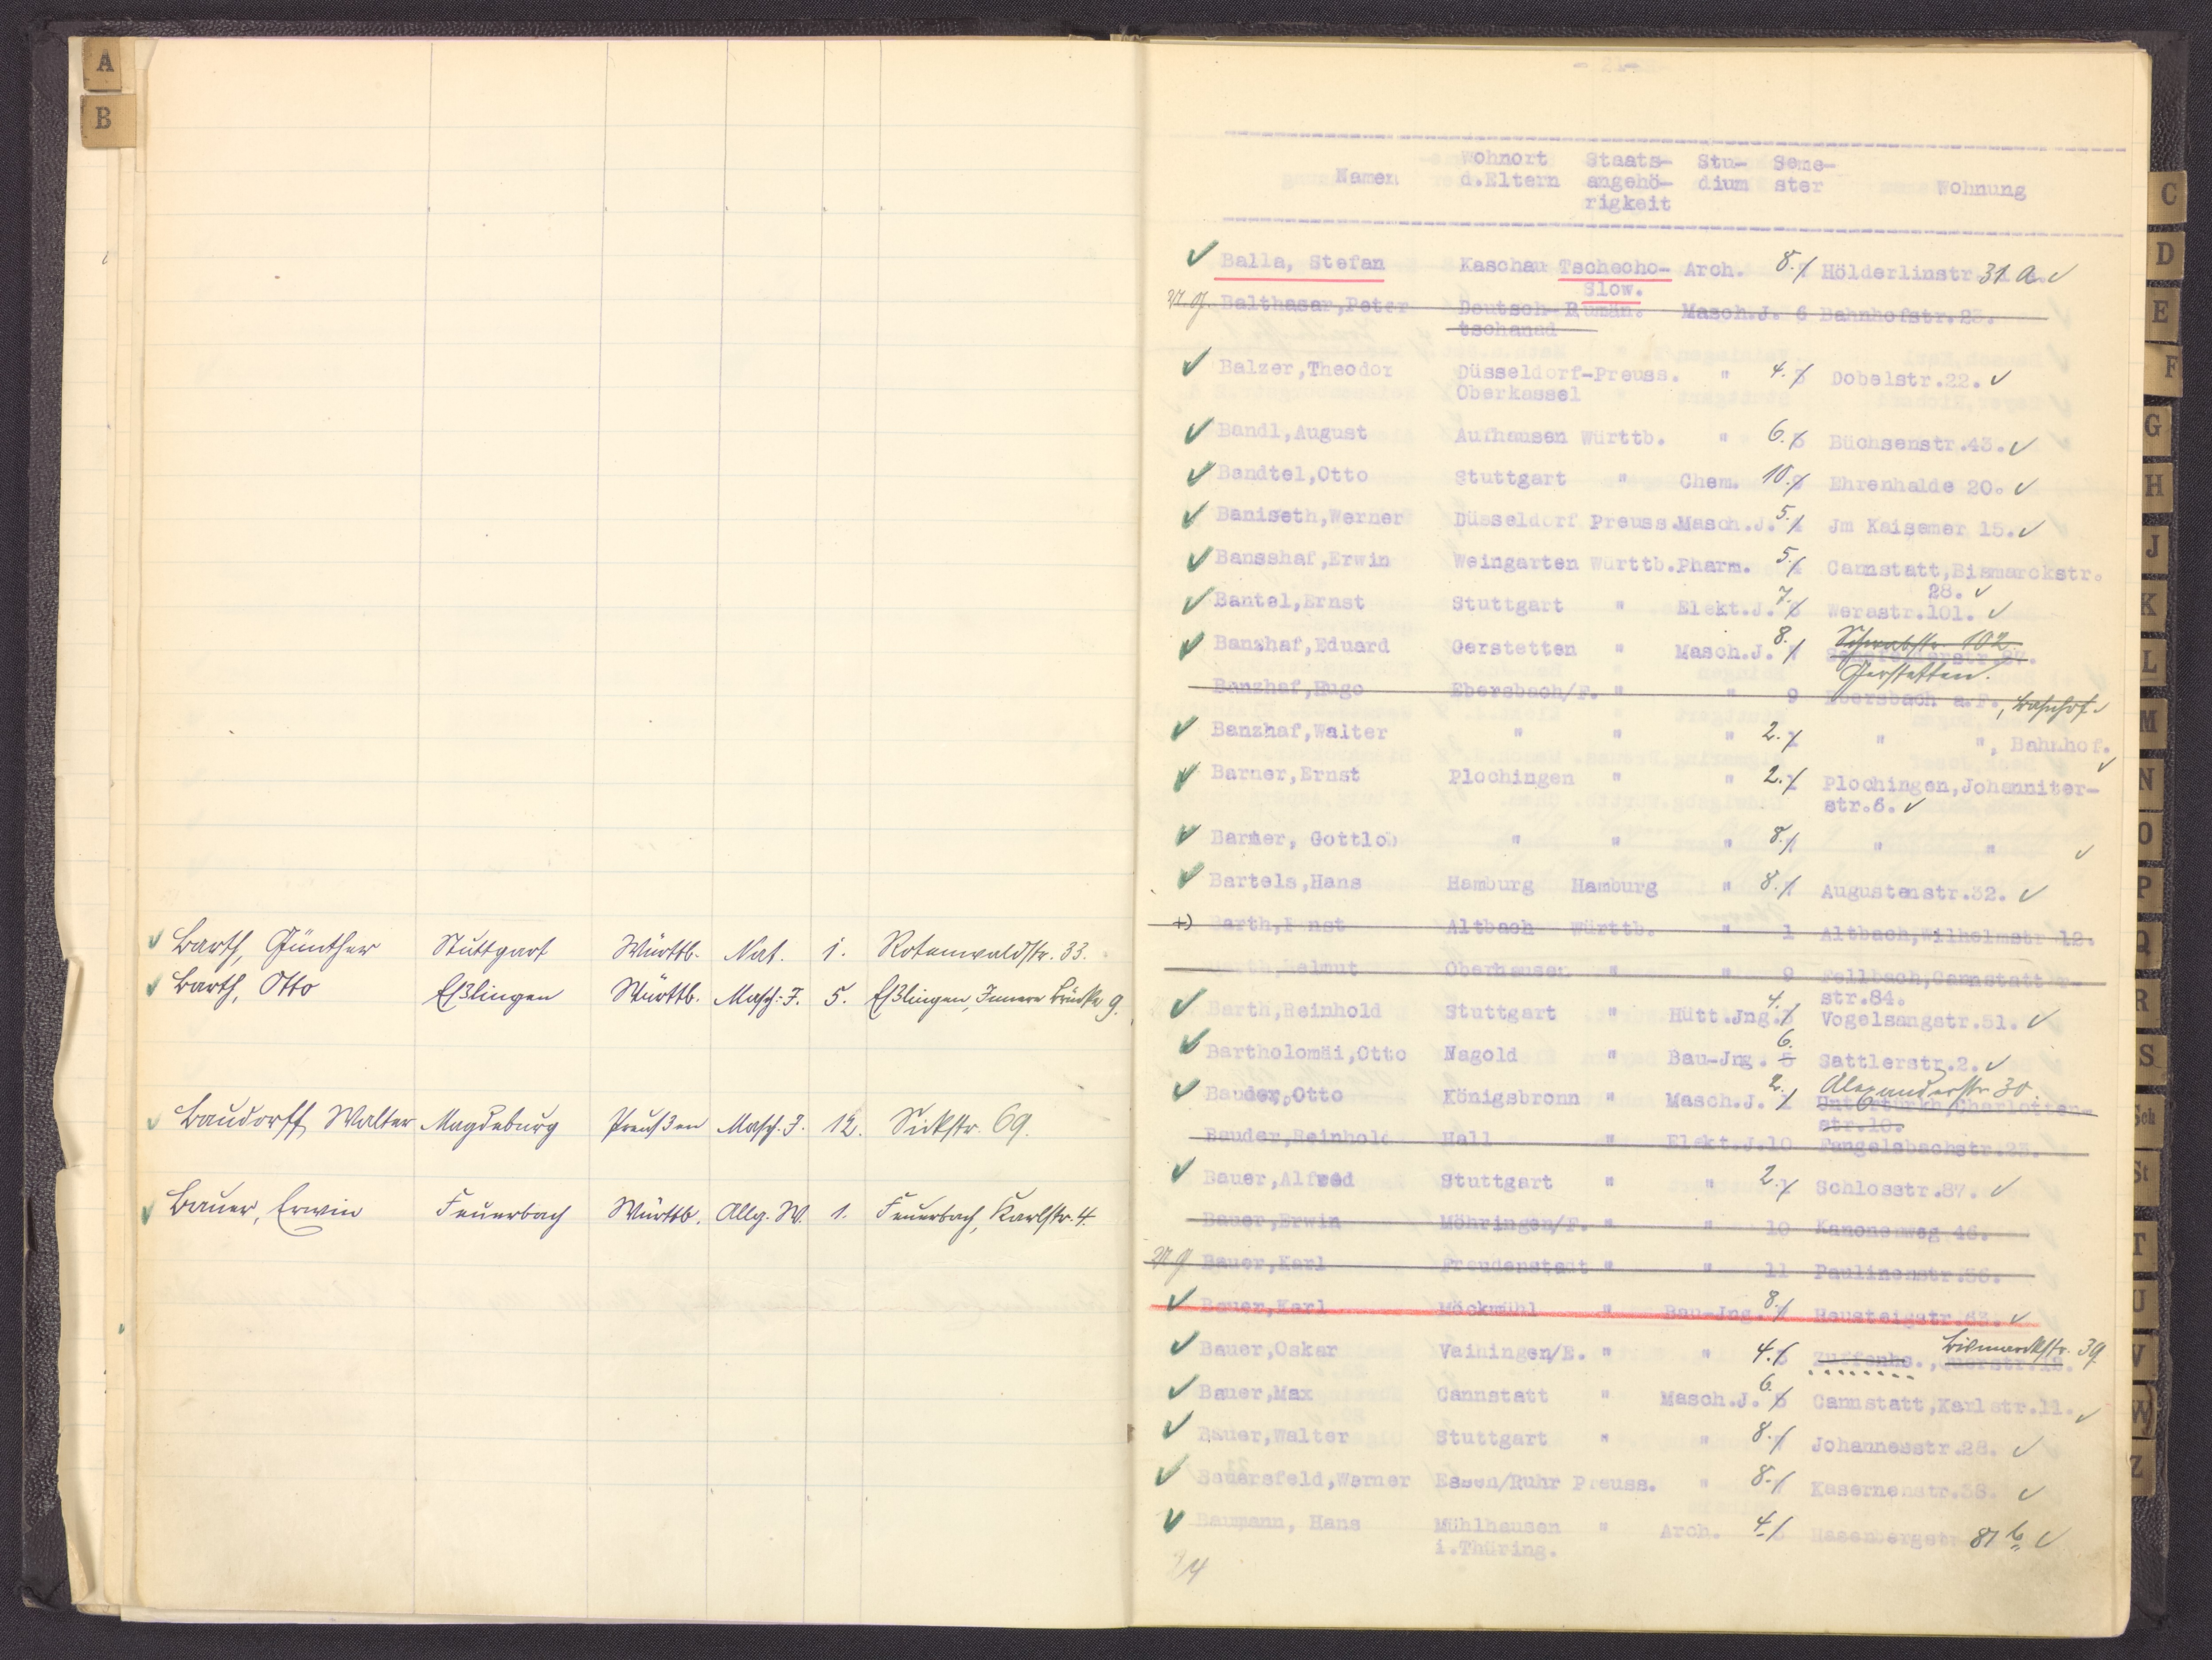 A
B
Barth, Günther Stuttgart Württb. Nat. 1. Rotenwaldstr. 33.
Barth, Otto Eßlingen Württb. Masch.-J. 5. Eßlingen, Innere Brücke 9.
Baudorff, Walter Magdeburg Preußen Masch.-J. 12. Sickstr. 69.
Bauer, Erwin Feuerbach Württb. Allg. W. 1. Feuerbach, Karlstr. 4.
Wohnort Staats- Stu- Seme-
Namen d.Eltern angehö- dium ster Wohnung
rigkeit
Balla, Stefan Kaschau Tschecho- Arch. 8. Hölderlinstr 31 A.
Slow.
Balthasar,Peter Deutsch- Rumän. Masch.J. 6 Bahnhofstr.23.
tschanad
Balzer,Theodor Düsseldorf-Preuss. " 4. 3 Dobelstr.22.
Oberkassel
Bandl,August Aufhausen Württb. " 6. 5 Büchsenstr.43.
Bandtel,Otto Stuttgart " Chem. 10. 9 Ehrenhalde 20.
Baniseth,Werner Düsseldorf Preuss.Masch.J. 5. 4 Jm Kaisemer 15.
Bansshaf,Erwin Weingarten Württb.Pharm. 5. 4 Cannstatt,Bismarckstr.
28.
Bantel,Ernst Stuttgart " Elekt.J. 7. 6 Werastr.101.
Banzhaf,Eduard Gerstetten " Masch.J. 8. Schwabstr. 102.
Gerstetten.
Banzhaf,Hugo Ebersbach/F. " " 9 Ebersbach a.F., Bahnhof.
Banzhaf,Walter " " " 2. 1 " ", Bahnhof.
Barner,Ernst Plochingen " " 2. 1 Plochingen,Johanniter-
str.6.
Barner, Gottlob " " " 8. " "
Bartels,Hans Hamburg Hamburg " 8. Augustenstr.32.
+) Barth,Ernst Altbach Württb. " 1 Altbach,Wilhelmstr 12.
Barth,Helmut Oberhausen " " 9 Fellbach,Cannstatter-
str.84.
Barth,Reinhold Stuttgart " Hütt.Jng. 4. 3 Vogelsangstr.51.
Bartholomäi,Otto Nagold " Bau-Jng. 6. 5 Sattlerstr.2.
Bauder,Otto Königsbronn " Masch.J. 2. 1 Alexanderstr 30.
Untertürkh,Charlotten-
str.10.
Bauder,Reinhold Hall " Elekt.J.10 Fangelsbachstr.23.
Bauer,Alfred Stuttgart " " 2. 1 Schlosstr.87.
Bauer,Erwin Möhringen/F. " " 10 Kanonenweg 46.
Bauer,Karl Freudenstadt " " 11 Paulinenstr.56.
Bauer,Karl Möckmühl " Bau-Jng. 8. Heusteigstr.63.
Bauer,Oskar Vaihingen/E. " " 4. 3 Zuffenhs., Bismarckstr. 39
Bauer,Max Cannstatt " Masch.J. 6. 5 Cannstatt,Karlstr.11.
Bauer,Walter Stuttgart " " 8. Johannesstr.28.
Bauersfeld,Werner Essen/Ruhr Preuss. " 8. Kasernenstr.38.
Baumann, Hans Mühlhausen " Arch. 4. Hasenbergstr 81 b
i.Thüring.
C
D
E
F
G
H
J
K
L
M
N
O
P
Q
R
S
Sch
St
T
U
V
W
Z